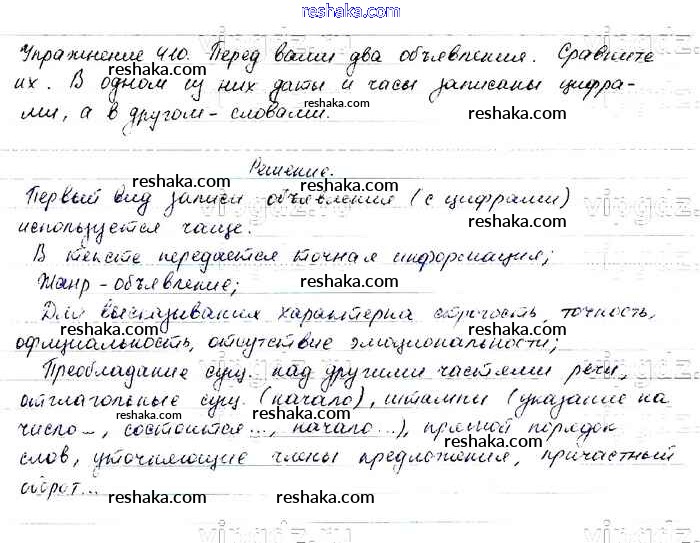 reshaka.com
Упражнение 410. Перед вами два объявления. Сравните
их. В одном из них даты и часы записаны цифра-
ми, а в другом - словами.
Решение.
Первый вид записи объявления (с цифрами)
используется чаще.
В тексте передается точная информация;
Жанр - объявление;
Для высказывания характерна строгость, точность,
официальность, отсутствие эмациональности;
Преобладание сущ. над другими частями речи,
отглагольные сущ. (начало), штампы (указание на
число..., состоится..., начало...), прямой порядок
слов, уточняющие члены предложения, причастный
оборот...
reshaka.com